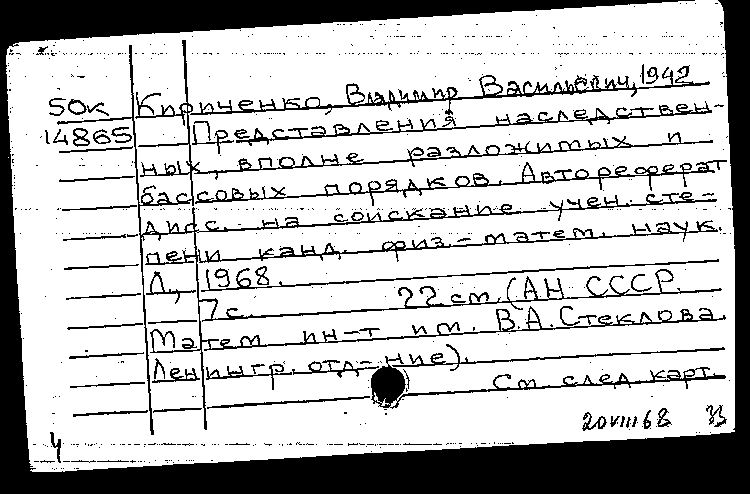 50к Кириченко, Владимир Васильевич, 1942
14865 Представления наследствен-
ных, вполне разложимых и
бассовых порядков. Автореферат
дисс. на соискание учен. сте-
пени канд. физ.-матем. наук.
Л., 1968.
7 с. 22 см. (АН СССР.
Матем ин-т им. В.А. Стеклова.
Ленингр. отд-ние).
См след. карт.
20VIII68